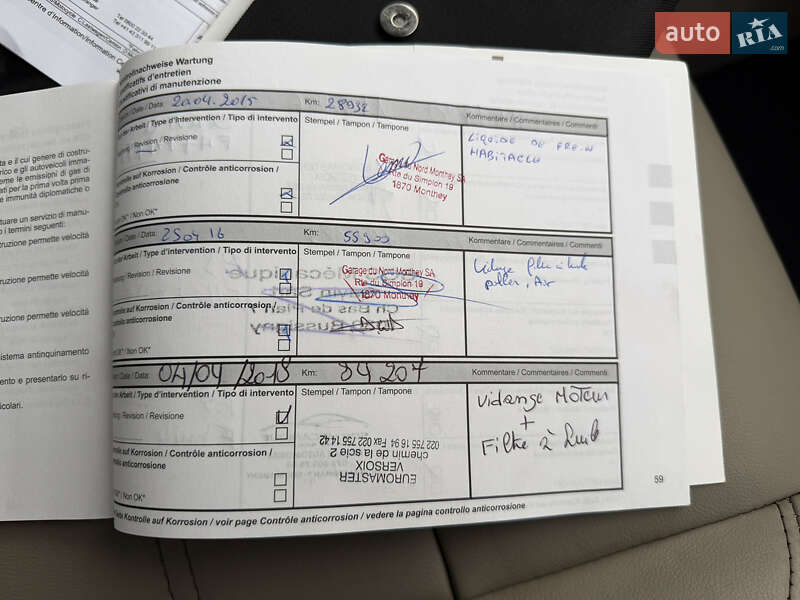 auto RIA .com
Tel 0800 02 33 44
trollnachweise Wartung
ificatifs d'entretien
ificativi di manutenzione
/ Date / Data: 20.04.2015 Km: 28932
Kommentare / Commentaires / Commenti
der Arbeit / Type d'intervention / Tipo di intervento
Stempel / Tampon / Tampone
/ Revision / Revisione
LIQUIDE DE FREIN
HABITACLE
Garage du Nord Monthey SA
Rte du Simplon 19
1870 Monthey
trolle auf Korrosion / Contrôle anticorrosion /
anticorrosione
OK* / Non OK*
/ Date / Data: 25 04 16 Km: 55900
Kommentare / Commentaires / Commenti
der Arbeit / Type d'intervention / Tipo di intervento
Stempel / Tampon / Tampone
/ Revision / Revisione
Vidange
pollen,
Garage du Nord Monthey SA
Rte du Simplon 19
1870 Monthey
trolle auf Korrosion / Contrôle anticorrosion /
anticorrosione
OK* / Non OK*
/ Date / Data: 04/04/2018 Km: 84 207
Kommentare / Commentaires / Commenti
Arbeit / Type d'intervention / Tipo di intervento
Stempel / Tampon / Tampone
/ Revision / Revisione
Vidange Moteur
+
Filtre à huile
EUROMASTER
VERSOIX
chemin de la scie 2
022 755 16 94 Fax 022 755 14 42
trolle auf Korrosion / Contrôle anticorrosion /
anticorrosione
OK* / Non OK*
59
Kontrolle auf Korrosion / voir page Contrôle anticorrosion / vedere la pagina controllo anticorrosione
ta e il cui genere di costru-
rico e gli autoveicoli imma-
erne le emissioni di gas di
ati per la prima volta prima
e immunità diplomatiche o
tuare un servizio di manu-
o i termini seguenti:
truzione permette velocità
truzione permette velocità
truzione permette velocità
sistema antinquinamento
ento e presentarlo su ri-
icolari.